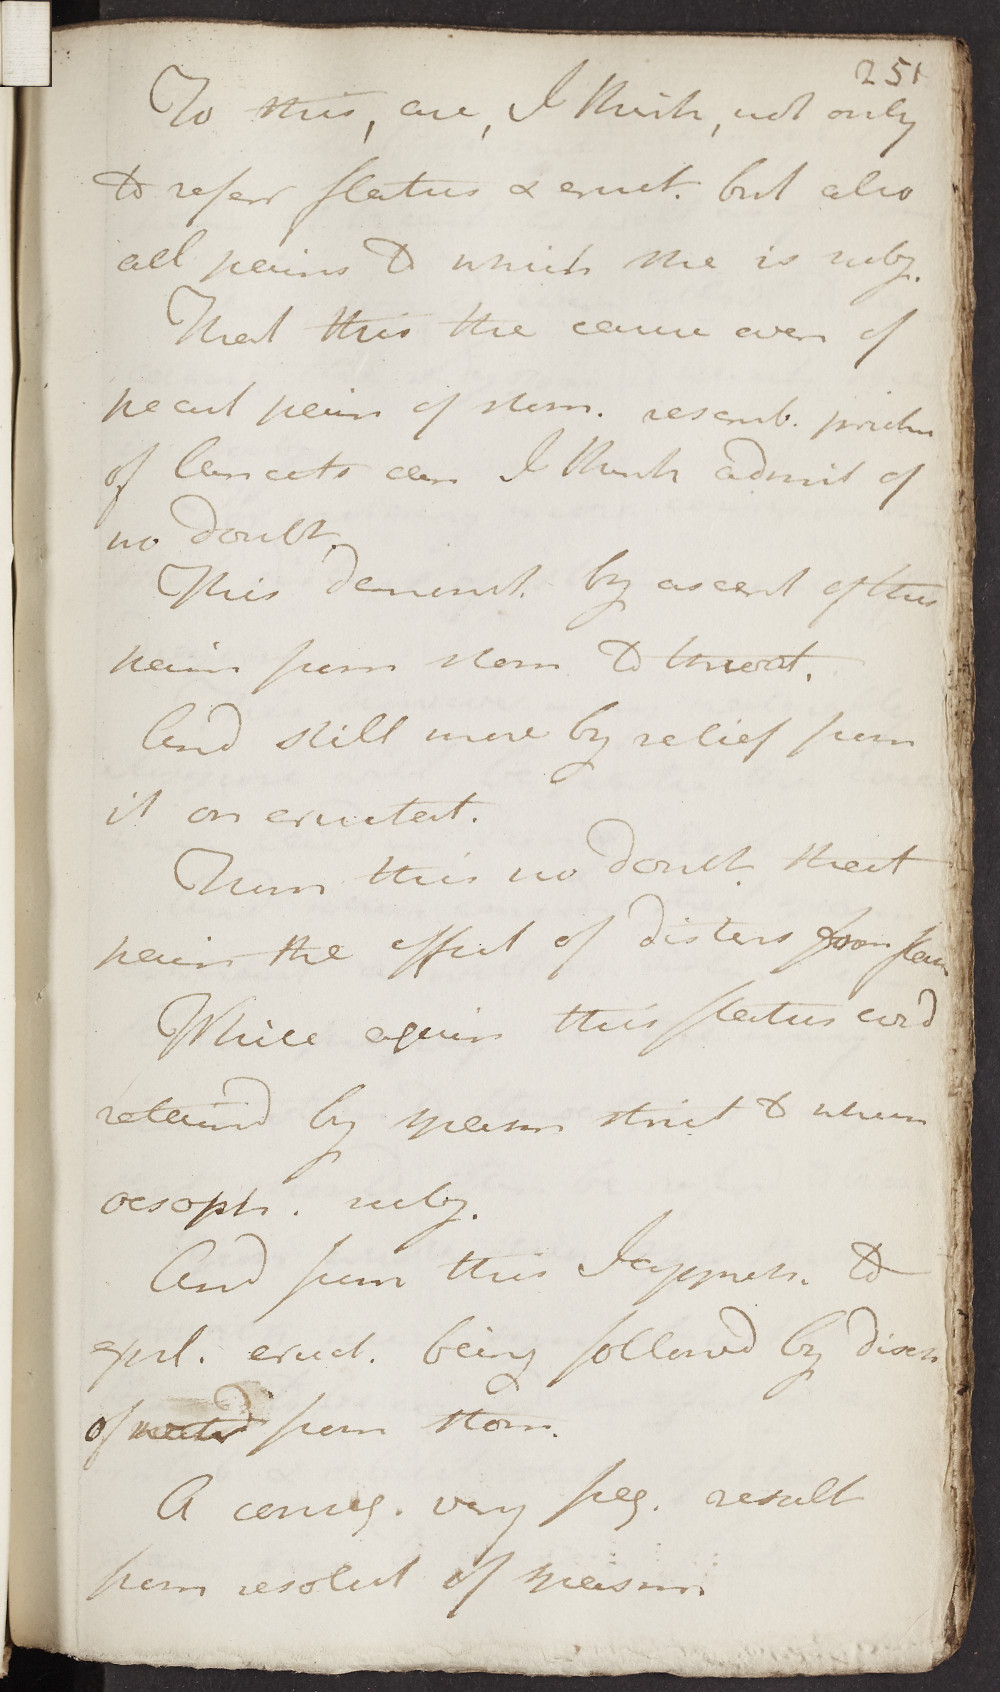 251
To this, are, I think, not only
to refer flatus & eruct. but also
all pains to which she is subj.
That this the cause even of
pecul pain of stom. resemb. prickn
of lancets can I think admit of
no doubt.
This demonst. by ascent of this
pain from stom to throat.
And still more by relief from
it on eructat.
From this no doubt that
pain the effect of distens from flatu
While again this flatus
retaind by spasm strict to whom
oesoph. subj.
And from this I appreh. to
expl. eruct. being followd by disch
of water from stom.
A conseq. very freq. result
from resolut of spasm